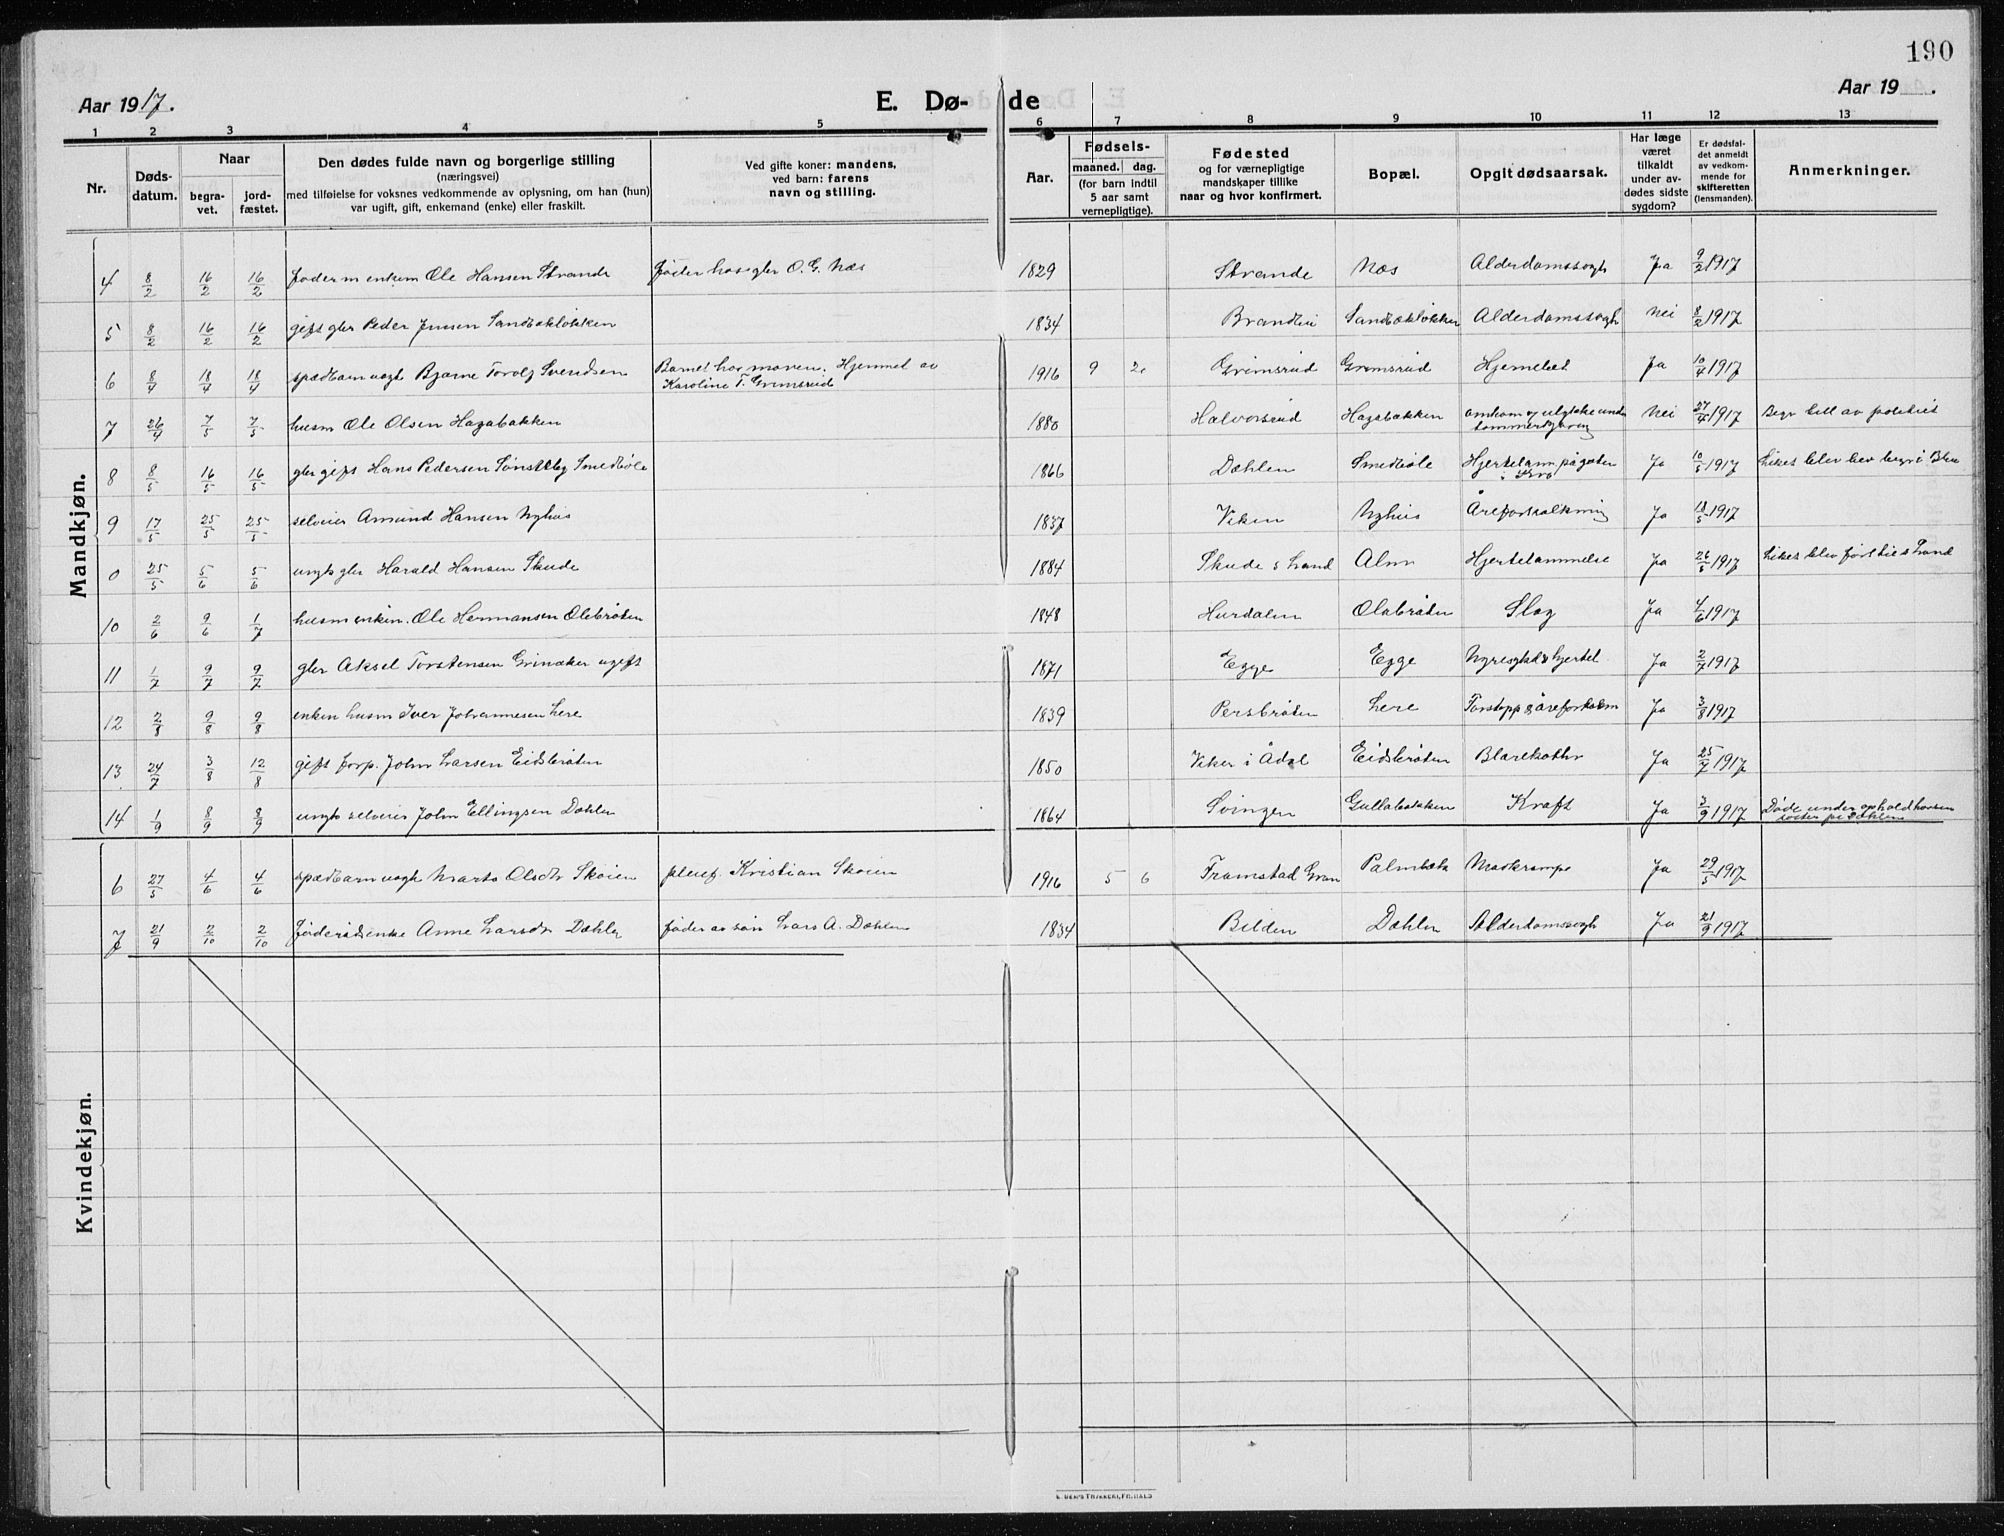 190
Aar 1917. E. Dø- de Aar 19 .
1 2 3 4 5 6 7 8 9 10 11 12 13
Nr. Døds-datum. Naar begra-vet. jord-fæstet. Den dødes fulde navn og borgerlige stilling (næringsvei) med tilføielse for voksnes vedkommende av oplysning, om han (hun) var ugift, gift, enkemand (enke) eller fraskilt. Ved gifte koner: mandens, ved barn: farens navn og stilling. Aar. Fødsels- maaned. dag. (for barn indtil 5 aar samt vernepligtige). Fødested og for værnepligtige mandskaper tillike naar og hvor konfirmert. Bopæl. Opgit dødsaarsak. Har læge været tilkaldt under av-dødes sidste sygdom? Er dødsfal-det anmeldt av vedkom-mende for skifteretten (lensmanden). Anmerkninger.
Mandkjøn.
4 8/2 16/2 16/2 föderm enkem Ole Hansen Strande föder hos gbr O. G. Næs 1829 Strande Næs Alderdomssvagh Ja 9/2 1917
5 8/2 16/2 16/2 gift gbr Peder Jensen Sandbækløkken 1834 Brandlii Sandbækløkken Alderdomssvagh Nei 8/2 1917
6 8/4 18/4 18/4 spædbarn uægt Bjarne Torolf Svendsen Barnet hos moren. Hjemmet av Karoline T. Grimsrud 1916 9 Grimsrud Grimsrud Ja 10/4 1917
7 26/4 7/5 7/5 husm Ole Olsen Hagabakken 1880 Halvorsrud Hagabakken omkom og ulykke under tømmerkjøring Nei 27/4 1917 Begr till av politiet
8 8/5 16/5 16/5 gbr gift Hans Pedersen Sønsteby Smedbøle 1866 Dæhlen Smedbøle Hjertelam på gaten Ja 10/5 1917 Liket blev
9 17/5 25/5 25/5 selveier Amund Hansen Nyhus 1837 Viken Nyhus Åreforkalkning Ja 18/5 1917
0 25/5 5/6 5/6 ungk gbr Harald Hansen Skude 1884 Skude s Land Alm Hjertelammelse Ja 26/5 1917 Liket blev ført til s Land
10 2/6 9/6 1/7 husm enkem. Ole Hermansen Olabråten 1848 Hurdalen Olabråten Slag Ja 4/6 1917
11 1/7 9/7 9/7 gbr Aksel Torstensen Grinaker ugift 1871 Egge Egge Nyresykd & hjertel. Ja 2/7 1917
12 2/8 9/8 9/8 enkem husm Iver Johannesen Lere 1839 Persbråten Lere Ja 3/8 1917
13 24/7 3/8 12/8 gift forp. John Larsen Eidsbråten 1850 Viker i Ådal Eidsbråten Blærekatar Ja 25/7 1917
14 1/9 8/9 8/9 ungk selveier John Ellingsen Dæhlen 1864 Svingen Gullabakken Kræft Ja 3/9 1917 Døde under ophold hos en søster på Dæhlen
Kvindekjøn.
6 27/5 4/6 4/6 spædbarn uægt Marta Olsdtr Skøien pleief. Kristian Skøien 1916 5 6 Framstad Gran Palmbæk Mavekrampe Ja 29/5 1917
7 21/9 2/10 2/10 føderådsenke Anne Larsdtr Dæhlen føder av søn Lars A. Dæhlen 1834 Bilden Dæhlen Alderdomssvagh Ja 21/9 1917